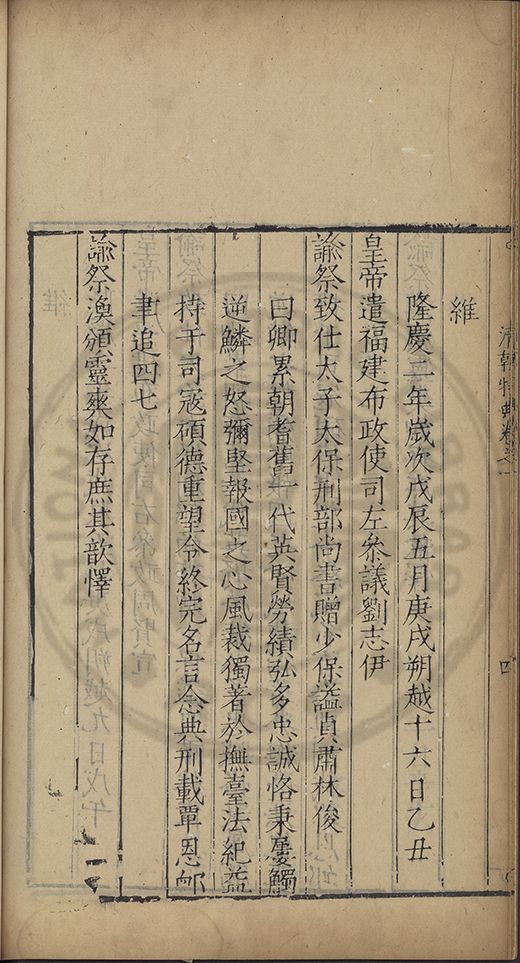 維
隆慶二年歲次戊辰五月庚戌朔越十六日乙丑
皇帝遣福建布政使司左叅議劉志伊
諭祭致仕太子太保刑部尚書贈少保謚貞肅林俊
曰卿累朝耆舊一代英賢勞績弘多忠誠恪秉屢觸
逆鱗之怒彌堅報國之心風裁獨著於撫臺法紀益
持于司寇碩德重望令終完名言念典刑載覃恩卹
聿追四七
諭祭渙頒靈爽如存庶其歆懌